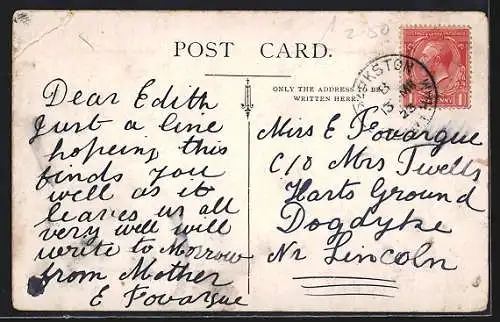 2-50
POST CARD.
ONLY THE ADDRESS TO BE
WRITTEN HERE.
Dear Edith
Just a line
hopeing this
finds you
well as it
leaves us all
very well will
write to Morrow
from Mother
E Fovargue
Miss E Fovargue
C/O Mrs Twells
Harts Ground
Dogdyke
Nr Lincoln
13 MR
23
PENNY